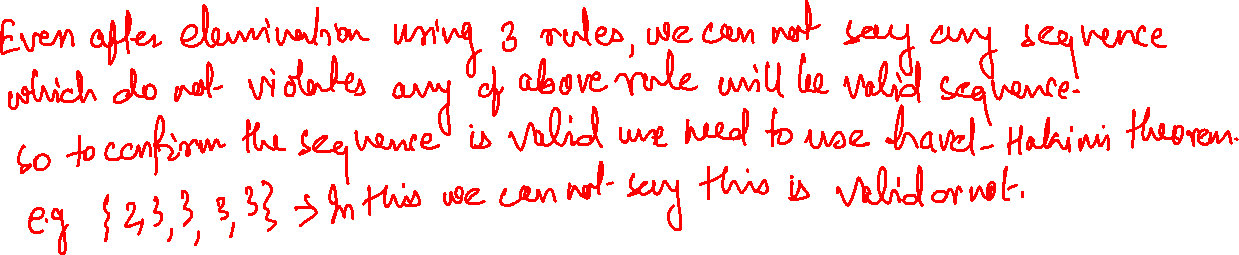 Even after elemination using 3 rules, we can not say any seqvence
which do not violates any of above rule will be valid seqvence.
so to confirm the seqvence is valid we need to use havel-Hakimis theorem.
e.g {2,3,3,3,3} → In this we can not say this is valid or not.